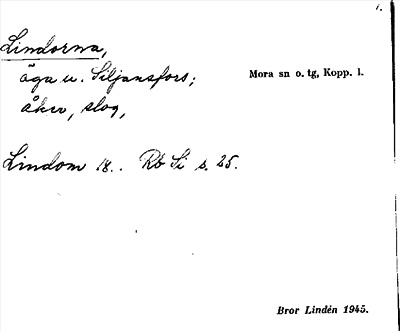 1.
Lindorna,
äga u. Siljansfors;
Mora sn o. tg, Kopp. l.
åker, slog,
Lindom 18.. Rb Si s. 25.
Bror Lindén 1945.